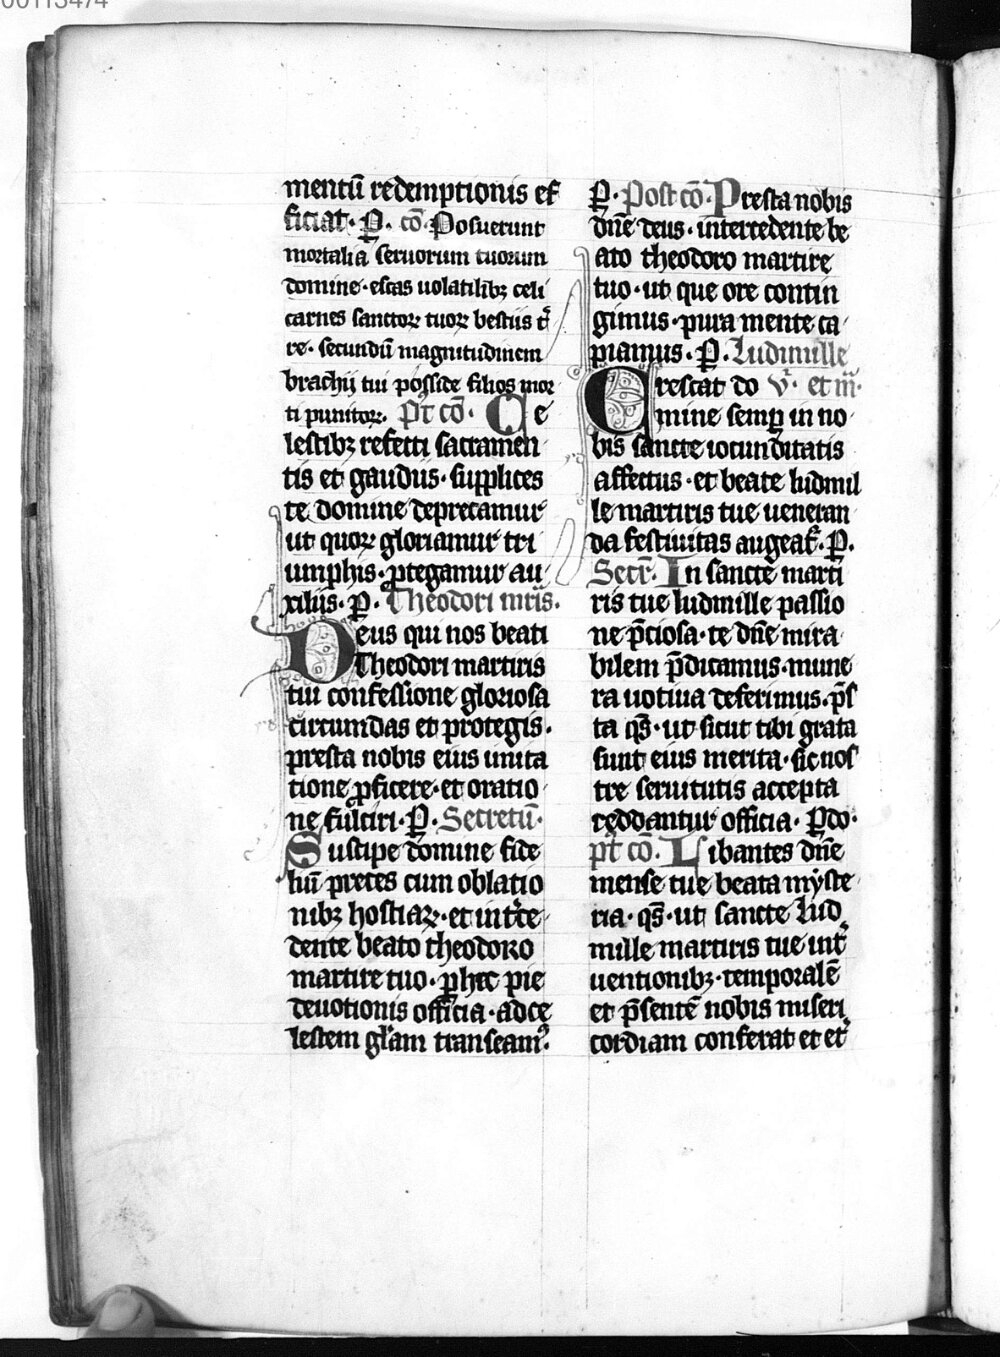 00113474
mentū redemptionis ef
ficiat. P. cō. Posuerunt
mortalia seruorum tuorum
domine. escas uolatilibꝫ celi
carnes sanctoꝝ tuoꝝ bestiis t̄
re. secundū magnitudinem
brachij tui posside filios mor
ti punitoꝝ. Pt cō. Ce
lestibꝫ refecti sacramen
tis et gaudiis. supplices
te domine deprecamur
ut quoꝝ gloriamur tri
umphis. ꝓtegamur au
xiliis. P. Theodori mr̄is.
Deus qui nos beati
Theodori martiris
tui confessione gloriosa
circumdas et protegis.
presta nobis eius imita
tione ꝓficere. et oratio
ne fulciri. P. Secretū.
Suscipe domine fide
liū preces cum oblatio
nibꝫ hostiaꝝ. et int̄ce
dente beato theodoro
martire tuo. ꝑ hec pie
deuotionis officia. ad ce
lestem gl̄am transeamꝰ.
P. Post cō. Presta nobis
dn̄e deus. intercedente be
ato theodoro martire
tuo. ut que ore contin
gimus. pura mente ca
piamus. P. Ludimille
Crescat do v̄. et m̄.
mine semꝑ in no
bis sancte iocunditatis
affectus. et beate ludmil
le martiris tue ueneran
da festiuitas augeat̄. P.
Secr̄. In sancte marti
ris tue ludmille passio
ne p̄ciosa. te dn̄e mira
bilem p̄dicamus. mune
ra uotiua deferimus. p̄s
ta qs̄. ut sicut tibi grata
sunt eius merita. sic nos
tre seruitutis accepta
reddantur officia. P do.
pt cō. Libantes dn̄e
mense tue beata myste
ria. qs̄. ut sancte Lud
mille martiris tue int̄
uentionibꝫ. temporalē
et p̄sentē nobis miseri
cordiam conferat et et̄